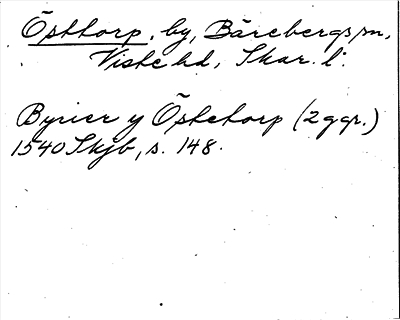 Östtorp, by, Bärebergs sn,
Viste hd, Skar. l.
Byrier y Östetorp (2 ggr.)
1540 Skjb, s. 148.